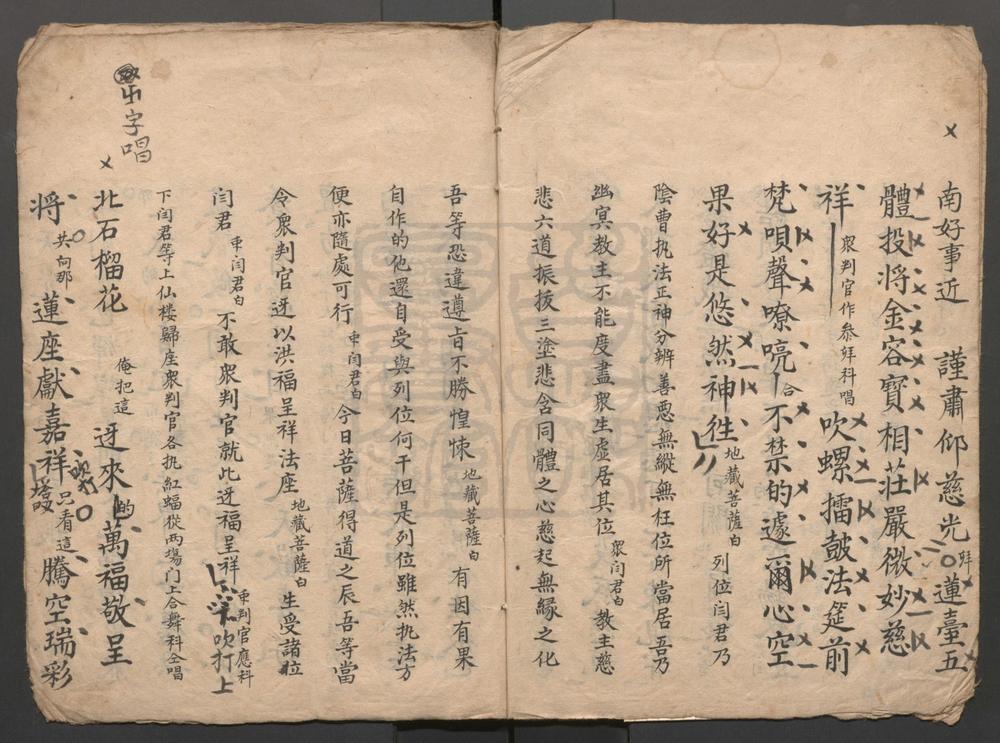 南好事近 謹肅仰慈光 拜 蓮臺五
體投將金容寶相莊嚴微妙慈
祥 眾判官作叅拜科唱 吹螺擂皷法筵前
梵唄聲嘹喨 合 不禁的遽爾心空
果好是悠然神徃 地藏菩薩白 列位閆君乃
陰曹执法正神分辨善悪無縱無枉位所當居吾乃
幽冥教主不能度盡眾生虛居其位 眾閆君白 教主慈
悲六道振拔三塗悲含同體之心慈起無緣之化
吾等恐違遵旨不勝惶悚 地藏菩薩白 有因有果
自作的他還自受與列位何干但是列位雖然执法方
便亦隨處可行 東閆君白 今日菩薩得道之辰吾等當
令眾判官迓以洪福呈祥法座 地藏菩薩白 生受諸位
閆君 東閆君白 不敢眾判官就此迓福呈祥 東判官應科 吹打上
下閆君等上仙楼歸座眾判官各执紅蝠從两塲门上合舞科仝唱
北石榴花 俺把這 迓來的萬福敬呈
字唱
將 共向那 蓮座獻嘉祥 吹打 只看這 騰空瑞彩